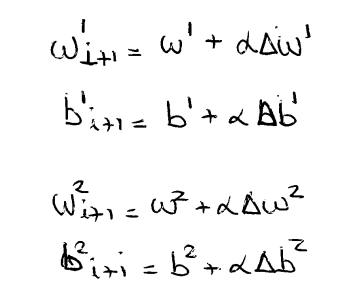 ω¹ᵢ₊₁ = ω¹ + αΔω¹
b¹ᵢ₊₁ = b¹ + αΔb¹
ω²ᵢ₊₁ = ω² + αΔω²
b²ᵢ₊ᵢ = b² + αΔb²